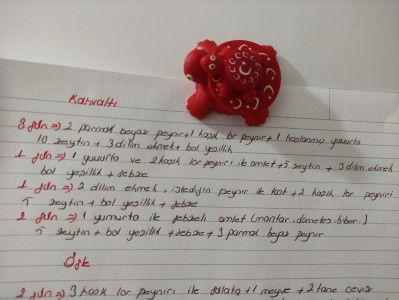 Kahvaltı
3 gün => 2 parmak beyaz peynir + 1 kaşık lor peynir + 1 haşlanmış yumurta
10 zeytin + 3 dilim ekmek + bol yeşillik
1 gün => 1 yumurta ve 2 kaşık lor peyniri ile omlet + 5 zeytin + 3 dilim ekmek
bol yeşillik + sebze
1 gün => 2 dilim ekmek, istediğin peynir ile tost + 2 kaşık lor peyniri
5 zeytin + bol yeşillik + sebze
2 gün => 1 yumurta ile sebzeli omlet (mantar, domates, biber.)
5 zeytin + bol yeşillik + sebze + 3 parmak beyaz peynir
Öğle
2 gün => 3 kaşık lor peyniri ile salata + 1 meyve + 2 tane ceviz